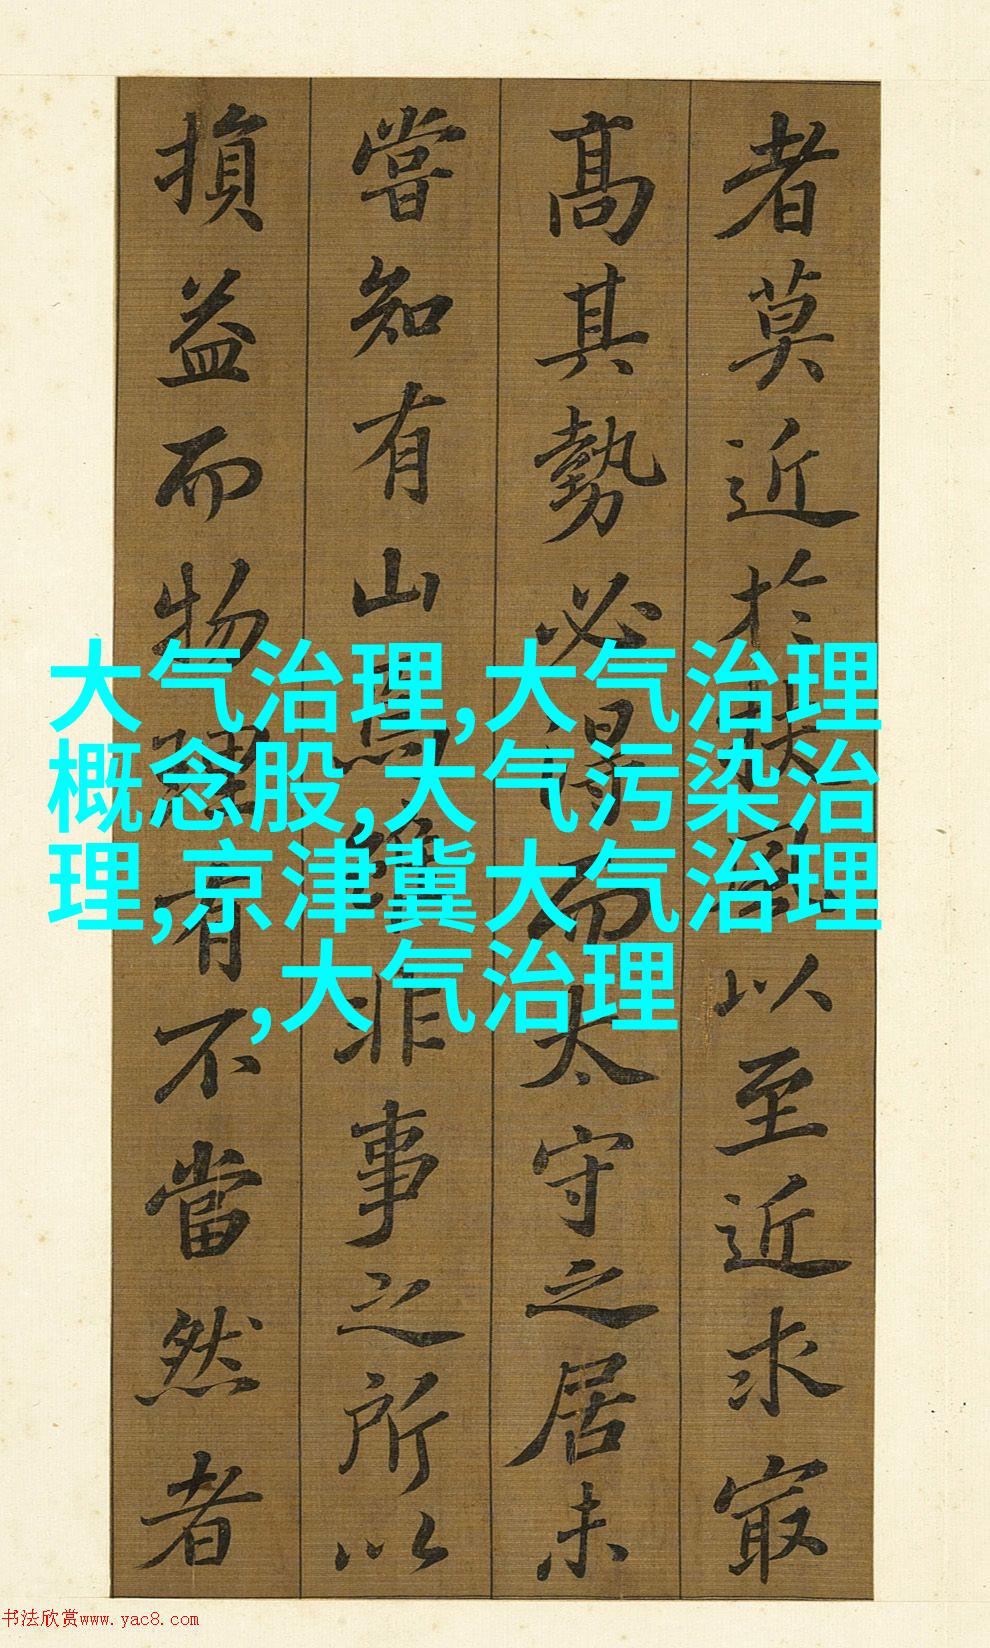 者莫近於扶風以至近求㝡
高其勢必得而太守之居未
嘗知有山焉雖非事之所以
損益而物理有不當然者
大气治理,大气治理
概念股,大气污染治
理,京津冀大气治理
,大气治理
书法欣赏www.yac8.com